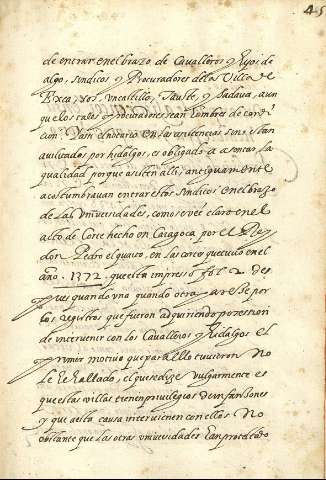 45
de entrar en el brazo de Cavalleros y Hijos de
algo, sindicos y Procuradores de la Villa de
Exea, sos, Uncastillo, Tauste, y Sadava, aun
que los tales Procuradores sean hombres de condi
cion
avilitados por hidalgos, es obligado a asentar la
qualidad porque asisten alli, antiguamente
acostumbravan entrar estos sindicos en el brazo
de las Universidades, como se veé claro en el
acto de Corte hecho en Caragoca por el Rey
don Pedro el quarto, en las cortes que tuvo en el
año. 1372. que esta impreso fol. 2 des
pues quando una quando otra se por
los registros que fueron adquiriendo posesion
de intervenir con los Cavalleros y Hidalgos el
primer motivo que para ello tuvieron No
le he hallado, el que se dize vulgarmente es
que estas villas tienen privilegios de infançones
y que a esta causa intervienen con ellos No
obstante que las otras universidades han protestado